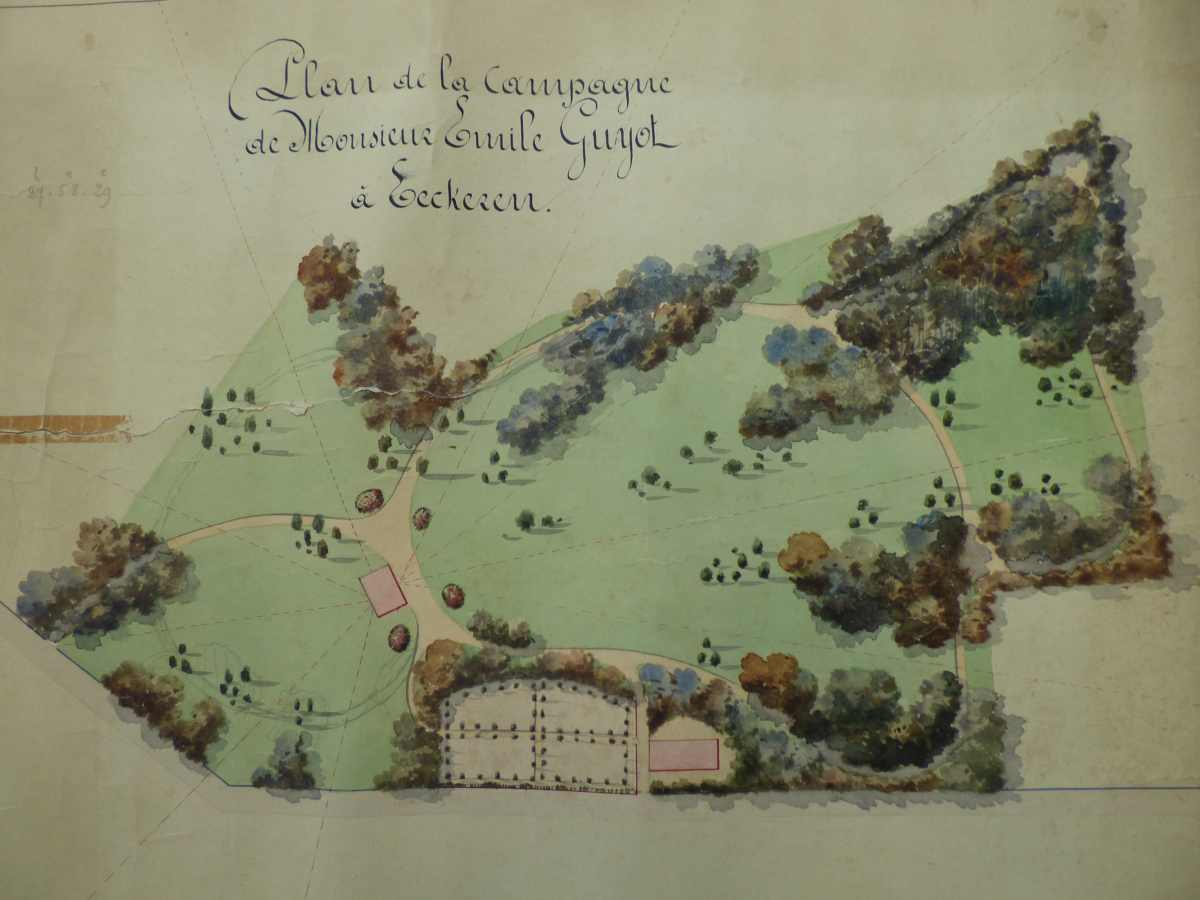 Plan de la Campagne
de Monsieur Emile Guyot
à Eeckeren.
h a c
27.58.29